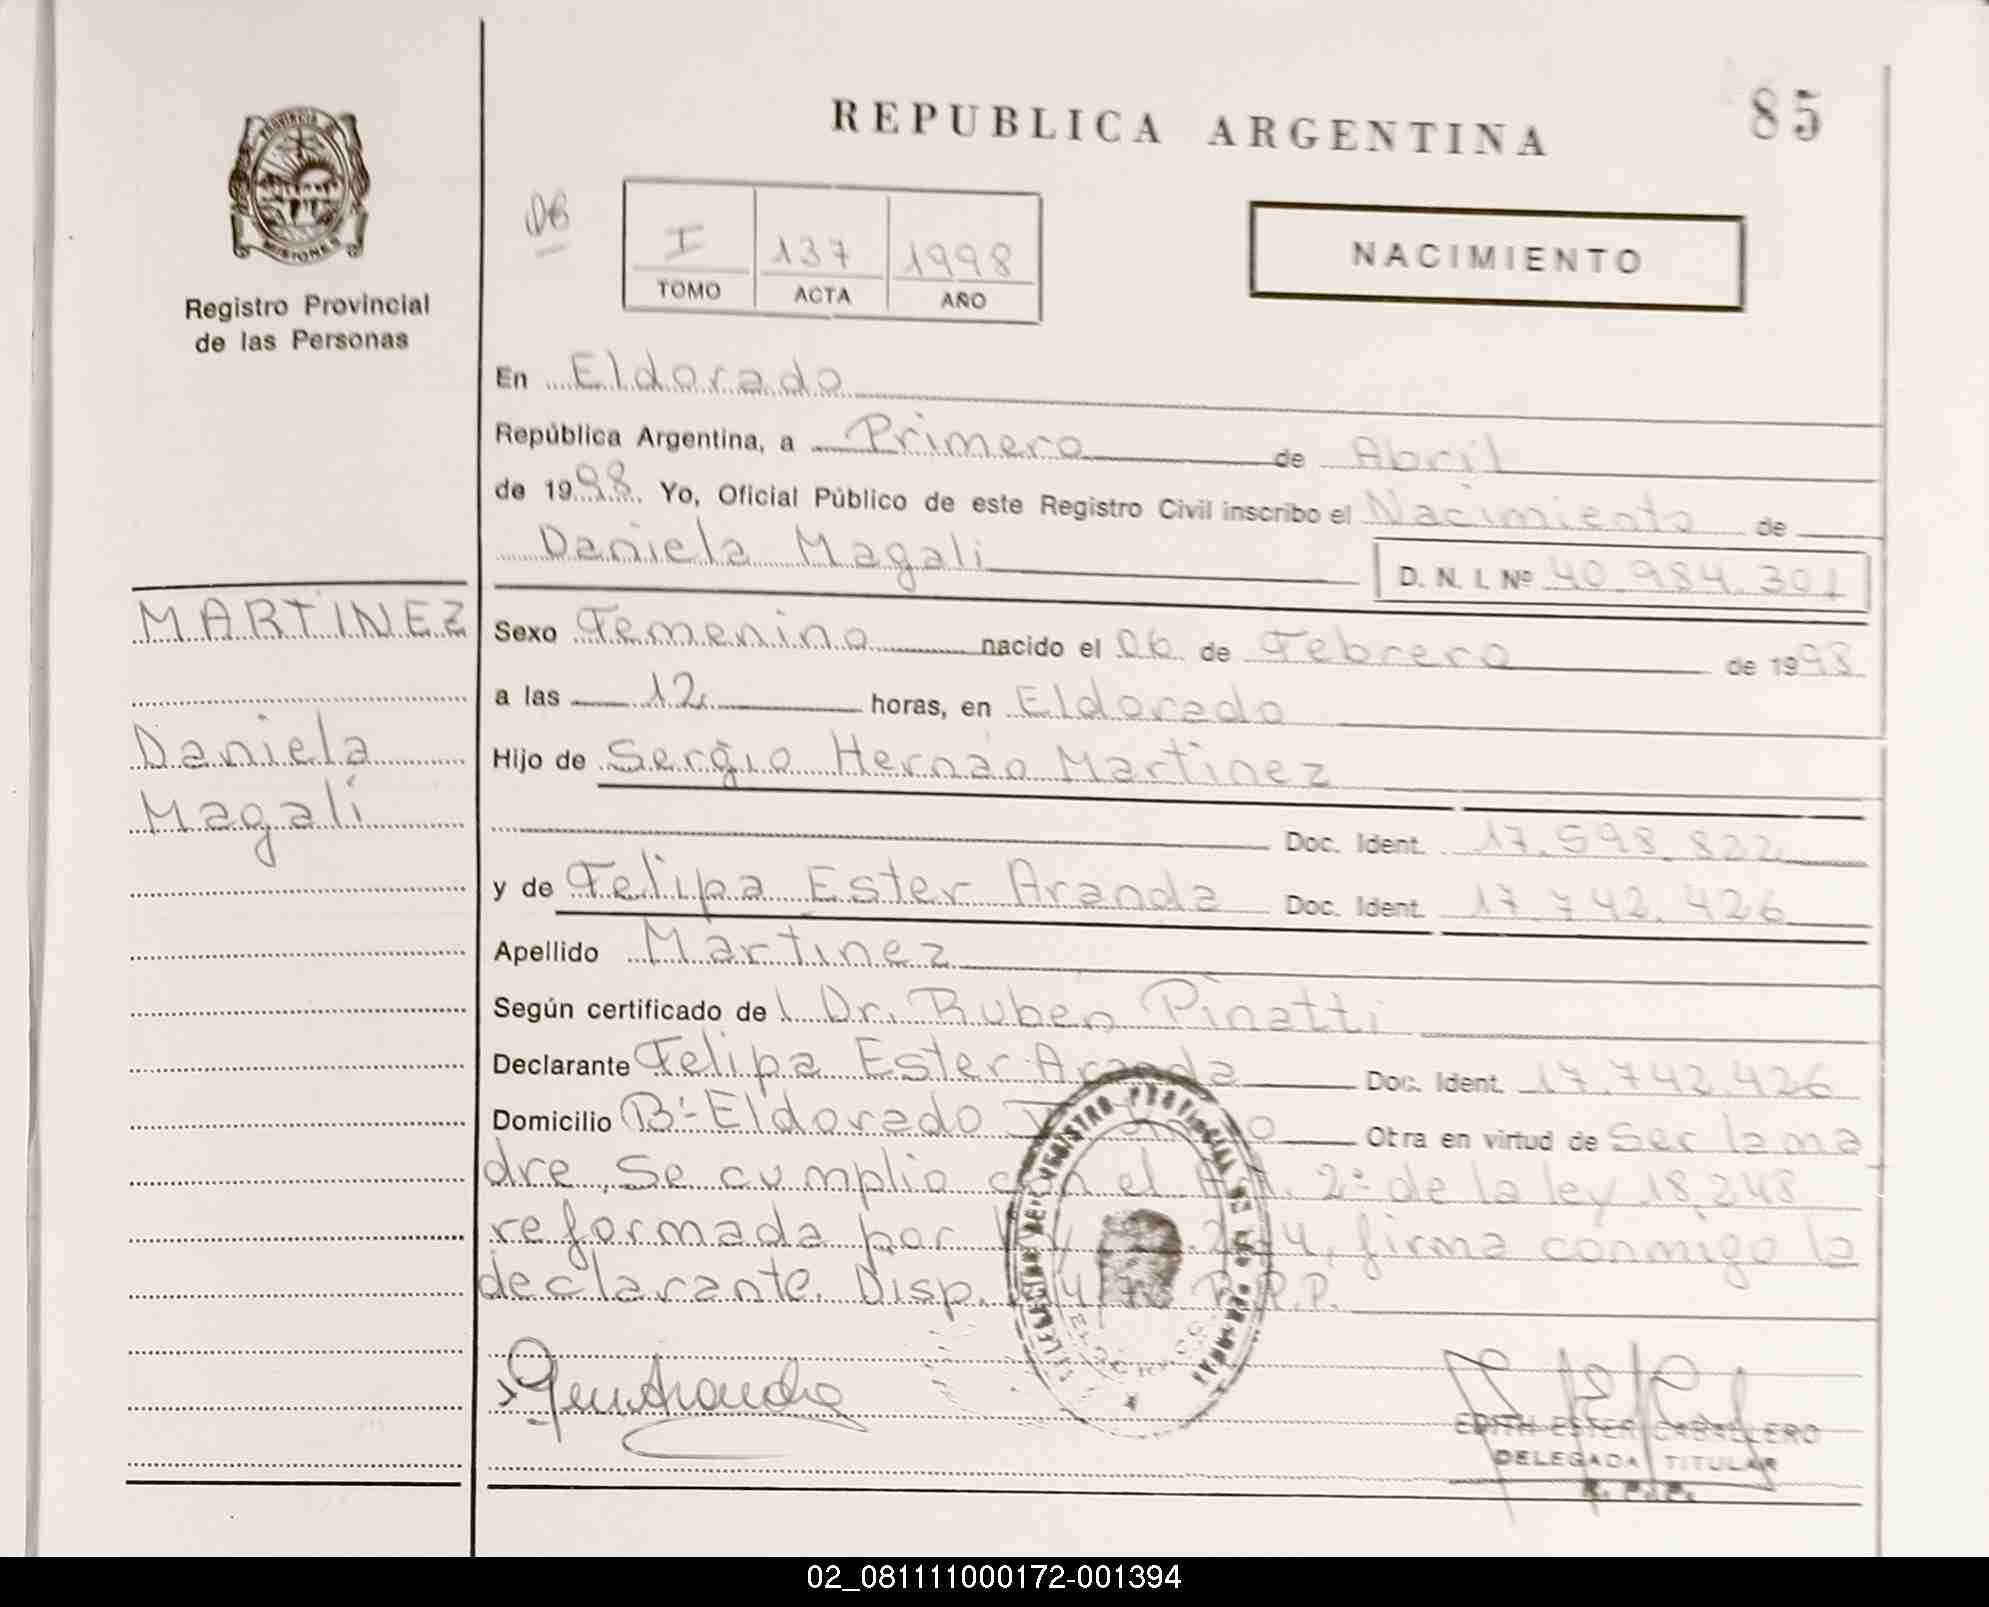 REPUBLICA ARGENTINA
85
PROVINCIA
MISIONES
Registro Provincial
de las Personas
I 137 1998
TOMO ACTA AÑO
NACIMIENTO
En Eldorado
República Argentina, a Primero de Abril
de 1998. Yo, Oficial Público de este Registro Civil inscribo el Nacimiento de
Daniela Magali
D. N. I. Nº 40.984.301
MARTINEZ
Daniela
Magali
Sexo Femenino nacido el 06 de Febrero de 1998
a las 12 horas, en Eldorado
Hijo de Sergio Hernán Martinez
Doc. Ident. 17.598.822
y de Felipa Ester Aranda Doc. Ident. 17.742.426
Apellido Martinez
Según certificado de Dr. Ruben Pinatti
Declarante Felipa Ester Aranda Doc. Ident. 17.742.426
Domicilio Bº Eldorado Otra en virtud de Ser la ma
dre, Se cumplio con el Art. 2º de la ley 18.248
reformada por firma conmigo la
declarante. Disp. R.P.P.
EDITH ESTER CABALLERO
DELEGADA TITULAR
R. P. P.
02_081111000172-001394